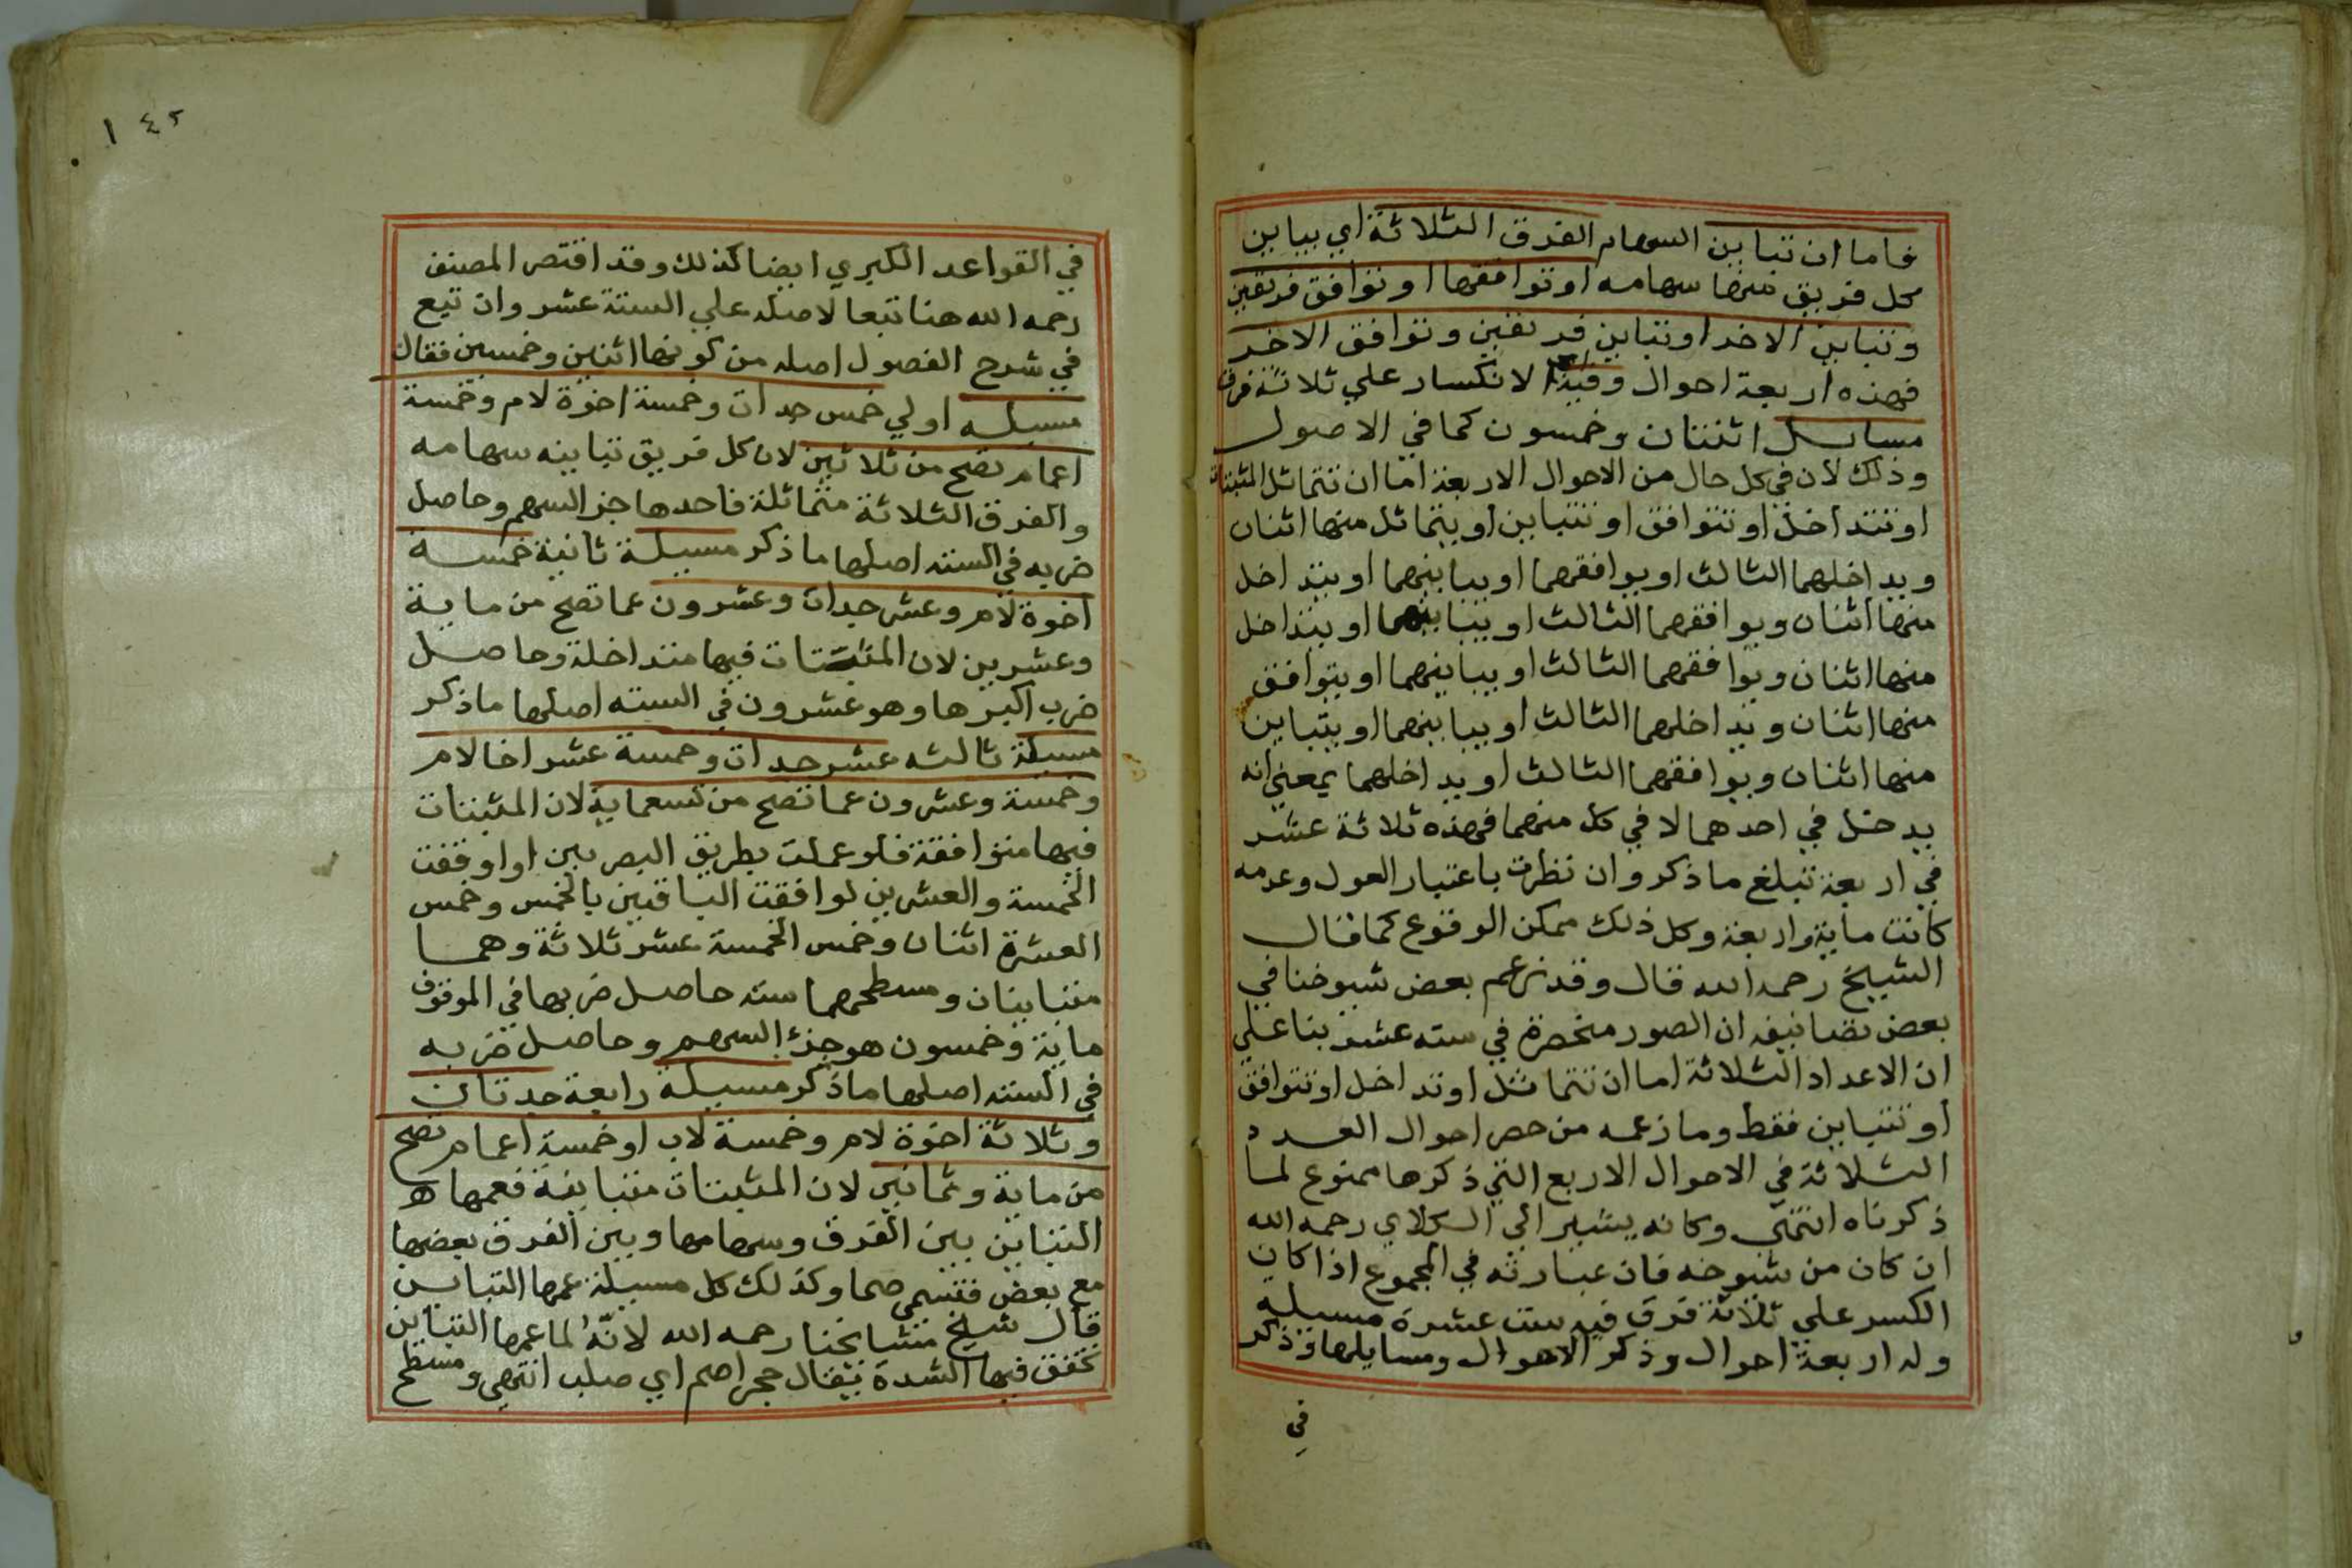 فاما ان تباين السهام الفرق الثلاثة اي يباين
كل فريق منها سهامه او توافقها او توافق فريقين
وتباين الاخر او تباين فريقين وتوافق الاخر
فهذه اربعة احوال وفي الانكسار علي ثلاثة فرق
مسايل اثنتان وخمسون كما في الاصول
وذلك لان في كل حال من الاحوال الاربعة اما ان تتماثل المثبتات
او تتداخل او تتوافق او تتباين او يتماثل منها اثنان
ويداخلهما الثالث او يوافقهما او يباينهما او يتداخل
منها اثنان ويوافقهما الثالث او يباينهما او يتداخل
منها اثنان ويوافقهما الثالث او يباينهما او يتوافق
منها اثنان ويداخلهما الثالث او يباينهما او يتباين
منها اثنان ويوافقهما الثالث او يداخلهما بمعني انه
يدخل في احدهما لا في كل منهما فهذه ثلاثة عشر
في اربعة تبلغ ما ذكر وان نظرت باعتبار العول وعدمه
كانت ماية واربعة وكل ذلك ممكن الوقوع كما قال
الشيخ رحمه الله قال وقد زعم بعض شيوخنا في
بعض تصانيفه ان الصور منحصرة في سته عشر بنا علي
ان الاعداد الثلاثة اما ان تتماثل او تداخل او تتوافق
او تتباين فقط وما زعمه من حصر احوال العدد
الثلاثة في الاحوال الاربع التي ذكرها ممنوع لما
ذكرناه انتهي وكانه يشير الي الكلاي رحمه الله
ان كان من شيوخه فان عبارته في المجموع اذا كان
الكسر علي ثلاثة فرق فيه ست عشرة مسيله
وله اربعة احوال وذكر الاحوال ومسايلها وذكر
في
١٤٢
في القواعد الكبري ايضا كذلك وقد اقتصر المصنف
رحمه الله هنا تبعا لاصله علي الستة عشر وان تبع
في شرح الفصول اصله من كونها اثنين وخمسين فقال
مسيله اولي خمس جدات وخمسة اخوة لام وخمسة
اعمام تصح من ثلاثين لان كل فريق تباينه سهامه
والفرق الثلاثة متماثلة فاحدها جز السهم وحاصل
ضربه في السته اصلها ما ذكر مسيلة ثانية خمسة
اخوة لام وعشر جدات وعشرون عما تصح من ماية
وعشرين لان المثبتات فيها متداخلة وحاصل
ضرب اكبرها وهو عشرون في السته اصلها ما ذكر
مسيلة ثالثه عشر جدات وخمسة عشر اخا لام
وخمسة وعشرون عما تصح من تسعماية لان المثبتات
فيها متوافقة فلو عملت بطريق البصريين او اوقفت
الخمسة والعشرين لوافقت الباقيين بالخمس وخمس
العشرة اثنان وخمس الخمسة عشر ثلاثة وهما
متباينان ومسطحهما سته حاصل ضربها في الموقوف
ماية وخمسون هو جزء السهم وحاصل ضربه
في السته اصلها ما ذكر مسيلة رابعة جدتان
وثلاثة اخوة لام وخمسة لاب او خمسة اعمام تصح
من ماية وثمانين لان المثبتات متباينة فعمها
التباين بين الفرق وسهامها وبين الفرق بعضها
مع بعض فتسمي صما وكذلك كل مسيلة عمها التباين
قال شيخ مشايخنا رحمه الله لانه لما عمها التباين
تحقق فيها الشدة يقال حجر اصم اي صلب انتهي ومسطح